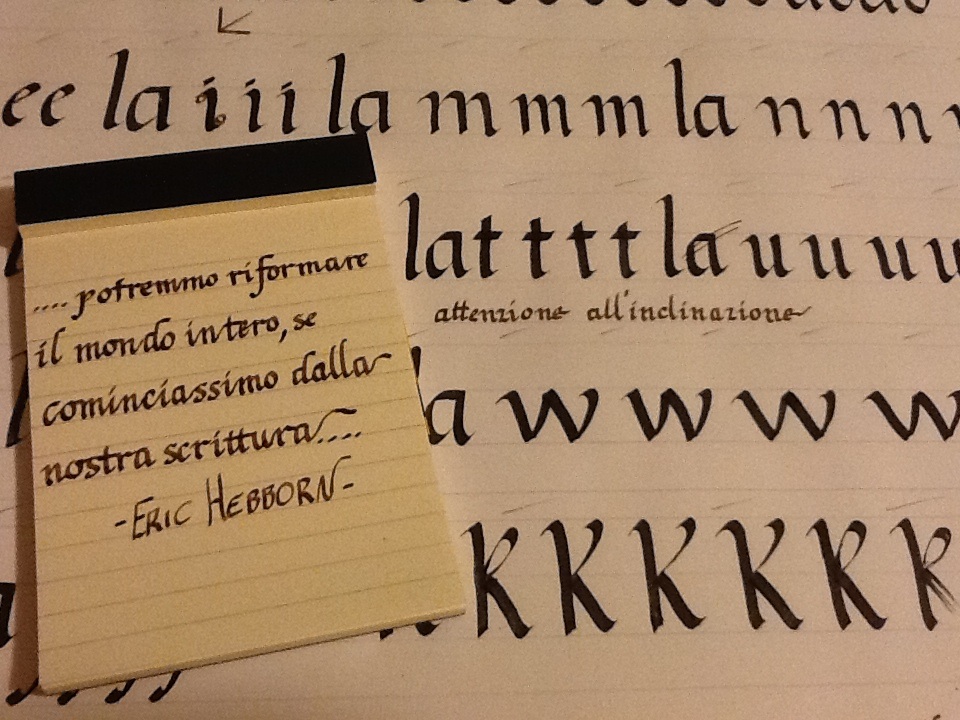 ee la i i i la m m m la n n n
la t t t t la u u u u
attenzione all'inclinazione
a w w w w
K K K K K K
.... potremmo riformare
il mondo intero, se
cominciassimo dalla
nostra scrittura....
- ERIC HEBBORN -